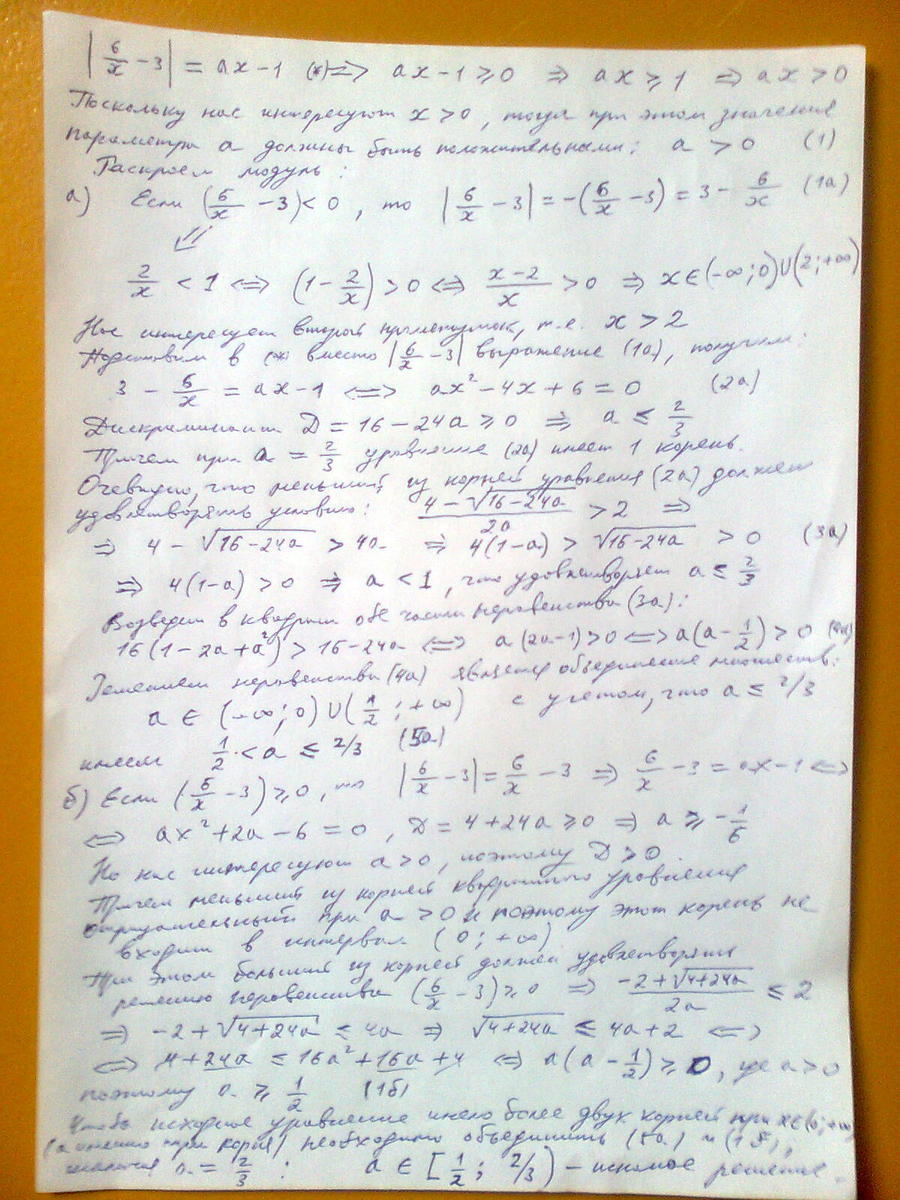 |6/x − 3| = ax−1 (*) ⇒ ax−1 ⩾ 0 ⇒ ax ⩾ 1 ⇒ ax > 0
Поскольку нас интересуют x > 0, тогда при этом значения
параметра a должны быть положительными: a > 0 (1)
Раскроем модуль:
а) Если (6/x − 3) < 0, то |6/x − 3| = −(6/x − 3) = 3 − 6/x (1а)
⇓
2/x < 1 ⇔ (1 − 2/x) > 0 ⇔ (x−2)/x > 0 ⇒ x ∈ (−∞; 0) ∪ (2; +∞)
Нас интересует второй промежуток, т.е. x > 2
Подставим в (*) вместо |6/x − 3| выражение (1а), получим:
3 − 6/x = ax−1 ⇔ ax² − 4x + 6 = 0 (2а)
Дискриминант D = 16 − 24a ⩾ 0 ⇒ a ≤ 2/3
Причем при a = 2/3 уравнение (2а) имеет 1 корень.
Очевидно, что меньший из корней уравнения (2а) должен
удовлетворять условию: (4 − √(16−24a))/2a > 2 ⇒
⇒ 4 − √(16−24a) > 4a ⇒ 4(1−a) > √(16−24a) > 0 (3а)
⇒ 4(1−a) > 0 ⇒ a < 1, что удовлетворяет a ≤ 2/3
Возведем в квадрат обе части неравенства (3а):
16(1−2a+a²) > 16−24a ⇔ a(2a−1) > 0 ⇔ a(a − 1/2) > 0 (4а)
Решением неравенства (4а) является объединение множеств:
a ∈ (−∞; 0) ∪ (1/2; +∞) с учетом, что a ≤ 2/3
имеем 1/2 < a ≤ 2/3 (5а)
б) Если (6/x − 3) ⩾ 0, то |6/x − 3| = 6/x − 3 ⇒ 6/x − 3 = ax−1 ⇔
⇔ ax² + 2a − 6 = 0, D = 4 + 24a ⩾ 0 ⇒ a ⩾ −1/6
Но нас интересуют a > 0, поэтому D > 0
Причем меньший из корней квадратного уравнения
отрицательный при a > 0 и поэтому этот корень не
входит в интервал (0; +∞)
При этом больший из корней должен удовлетворять
решению неравенства (6/x − 3) ⩾ 0 ⇒ (−2+√(4+24a))/2a ≤ 2
⇒ −2+√(4+24a) ≤ 4a ⇒ √(4+24a) ≤ 4a+2 ⇔
⇔ 4+24a ≤ 16a²+16a+4 ⇔ a(a − 1/2) ⩾ 0, где a > 0
поэтому a ⩾ 1/2 (1б)
Чтобы исходное уравнение имело более двух корней при x∈(0; +∞)
(а именно три корня) необходимо объединить (5а) и (1б),
исключая a = 2/3 : a ∈ [1/2; 2/3) − искомое решение.